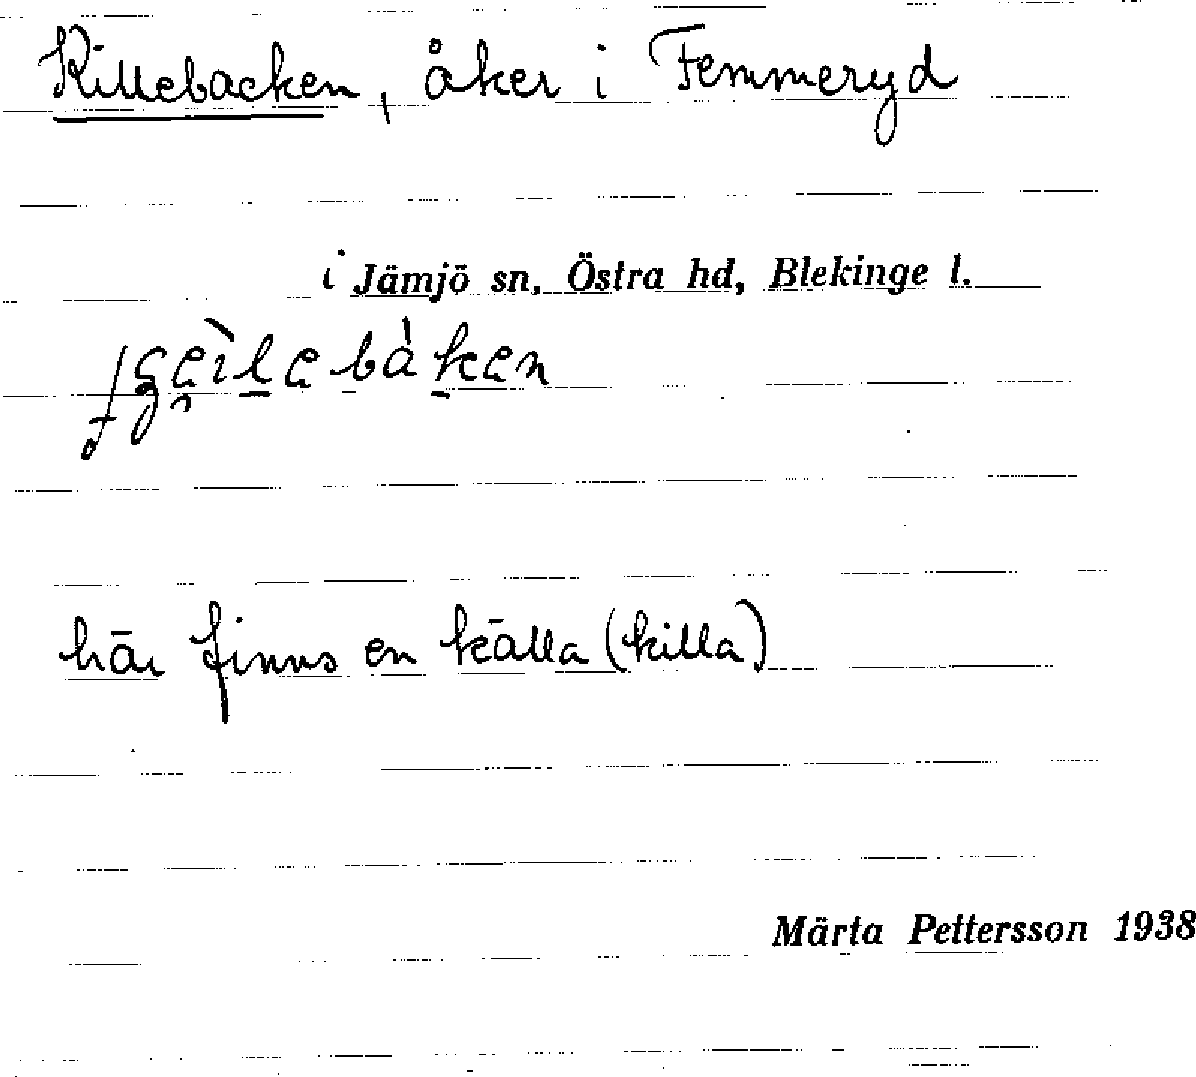 Killebacken, åker i Femmeryd
i Jämjö sn, Östra hd, Blekinge l.
här finns en källa (killa)
Märta Pettersson 1938